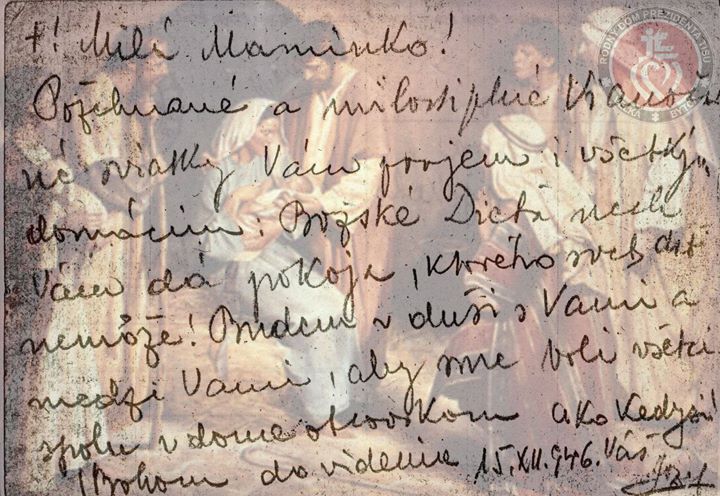 +! Milá Maminko!
Požehnané a milostiplné Vianoč
né sviatky Vám prajem i všetkým
domácim. Božské Dieťa nech
Vám dá pokoja, ktorého svet dať
nemôže! Budem v duši s Vami a
medzi Vami, aby sme boli všetci
spolu v dome otcovskom ako kedysi!
S Bohom do videnia 15.XII.946. Váš
RODNÝ DOM PREZIDENTA TISU
BYTČA